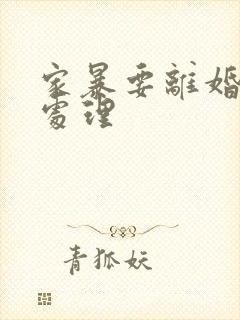 家暴要離婚
處理
青狐妖